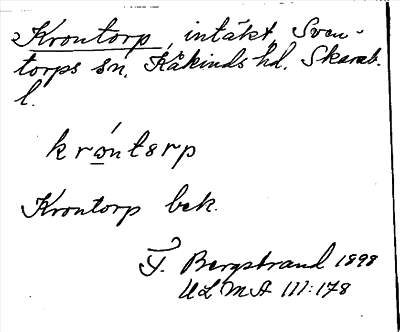 Krontorp, intäkt, Sven-
torps sn, Kåkinds hd. Skarab.
l.
Krontorp bek.
T. Bergstrand 1898
ULMA 111:178